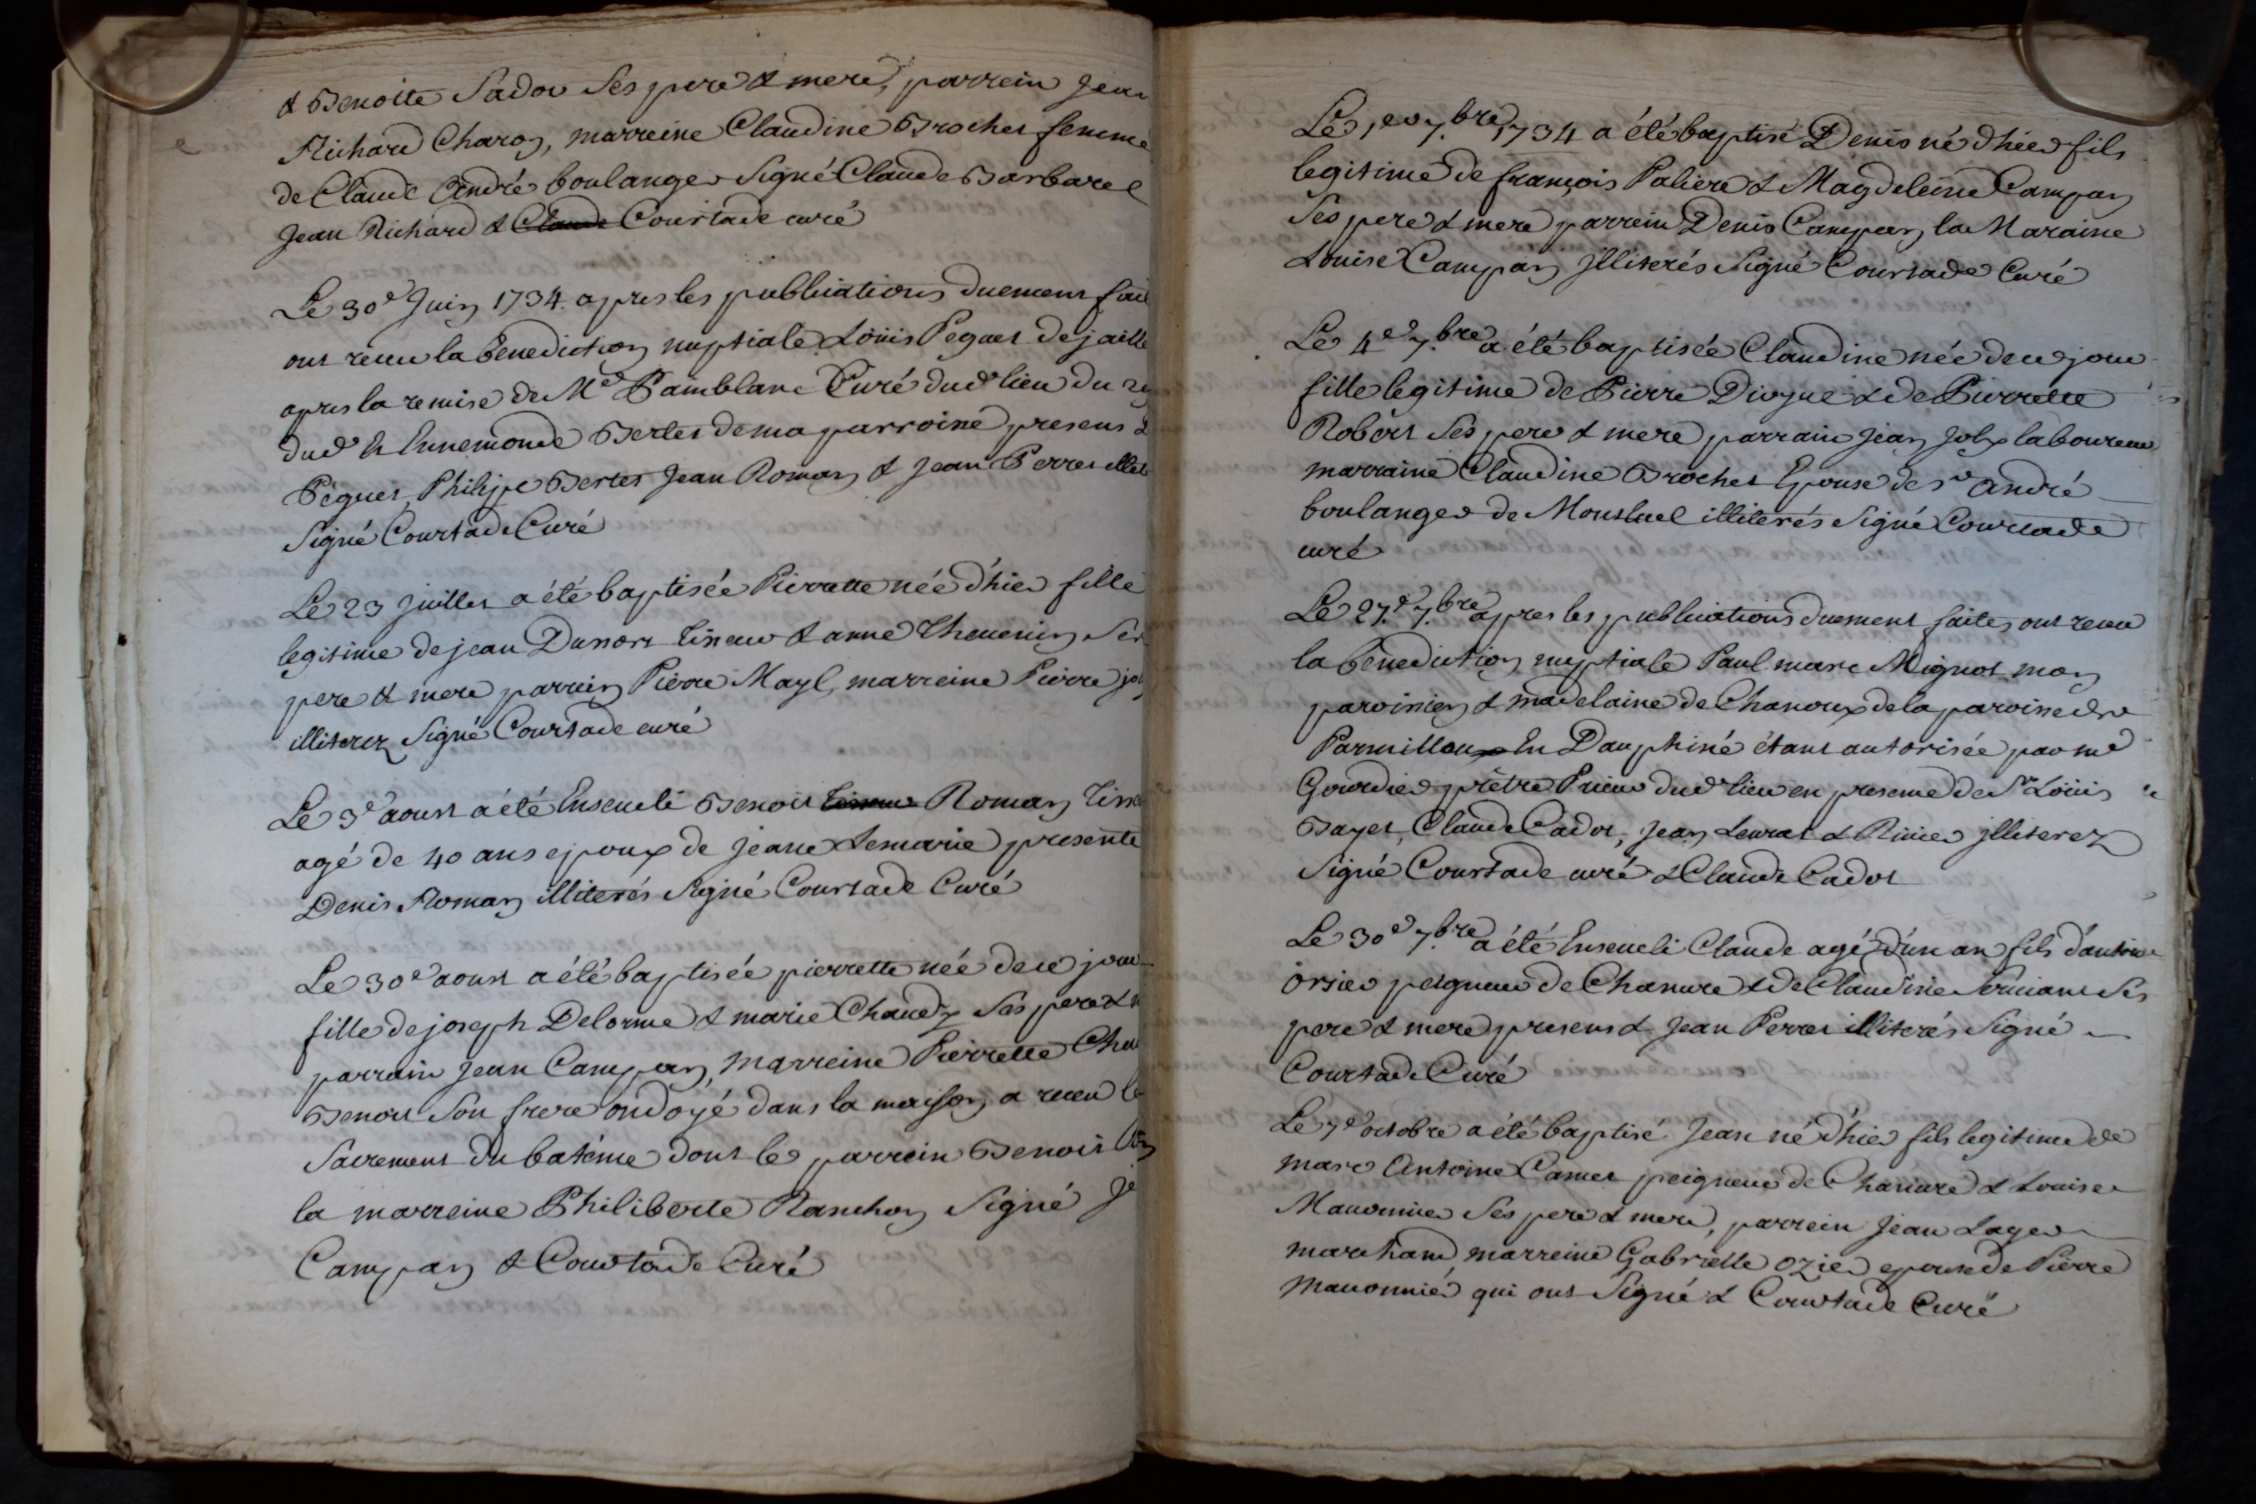 & Benoite Sador Ses pere & mere, parrein Jean
Richard Charoy, marreine Claudine Brochet femme
de Claude André boulanger Signé Claude Barbarel
Jean Richard & Claude Courtade curé
Le 30e Juin 1734 apres les publications duement fait
ont receu la benediction nuptiale Loüis Peguet de jaill
apres la remise de Me Pamblanc Curé dud lieu du
dud & Ennemonde Bertet de ma parroise presens
Peguet, Philipe Bertet Jean Roman & Jean Perret illit
Signé Courtade Curé
Le 23 Juillet a été baptisée Pierrette née d'hier fille
legitime de jean Dumort Tineur & anne Thevenin Ses
pere & mere parrein Pierre Mayl, marreine Pierre
illiterez Signé Courtade curé
Le 3e aoust a été Enseveli Benoit Tineur Roman
agé de 40 ans epoux de Jeane Lemarie presente
Denis Roman illiterés Signé Courtade Curé
Le 30e aoust a été baptisée pierrette née de ce jour
fille de joseph Delorme & marie Chaudy Ses pere &
parrain Jean Campan, marreine Pierrette
Benoit Son frere ondoyé dans la maison a receu le
Sacrement du batême dont le parrein Benoit
la marreine Philiberte Ranchon Signé
Campan & Courtade Curé
Le 1er 7.bre 1734 a été baptisé Denis né d'hier fils
legitime de françois Paliere & Magdeleine Campan
Ses pere & mere parrein Denis Campan la Maraine
Louise Campan Jlliterés Signé Courtade Curé
Le 4e 7.bre a été baptisée Claudine née de ce jour
fille legitime de Pierre Diogue & de Pierrette
Robert Ses pere & mere parrain Jean Joly laboureur
marraine Claudine Brochet Epouse de Sr André
boulanger de Montluel illiterés Signé Courtade
curé
Le 27.e 7.bre apres les publications duement faites ont receu
la benediction nuptiale Paul marc Mignot mon
paroissien & madelaine de Chanoux de la paroisse de
Parmilloux En Dauphiné étant autorisée par me
Gourdier prêtre Prieur dud lieu en presence de Sr Loüis
Bayet, Claude Cadot, Jean Leurat & Rinier Jlliterez
Signé Courtade curé & Claude Cadot
Le 30e 7.bre a été Enseveli Claude agé d'un an fils d'antoine
orsier peigneur de Chanvre & de Claudine Servians Ses
pere & mere presens & Jean Perret illiterés Signé
Courtade Curé
Le 7e octobre a été baptisé Jean né d'hier fils legitime de
marc Antoine Camet peigneur de Chanvre & Louise
Mauonnier Ses pere & mere, parrein Jean Layer
marchand, marreine Gabrielle ozier epouse de Pierre
Mauonnier qui ont Signé & Courtade Curé